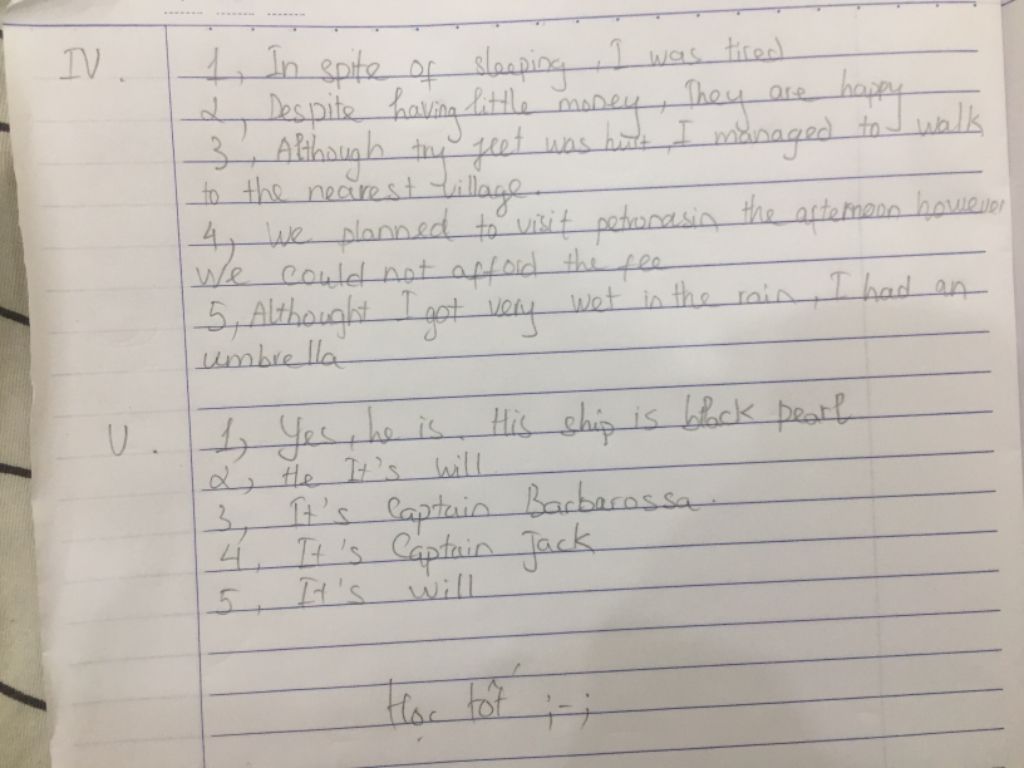 IV. 1, In spite of sleeping, I was tired
2, Despite having little money, They are happy
3, Although my feet was hurt, I managed to walk
to the nearest village.
4, We planned to visit petronasin the afternoon however
We could not afford the fee
5, Althought I got very wet in the rain, I had an
umbrella
V. 1, Yes, he is. His ship is black pearl
2, He It's Will
3, It's Captain Barbarossa.
4, It's Captain Jack
5, It's Will
Học tốt ;-;